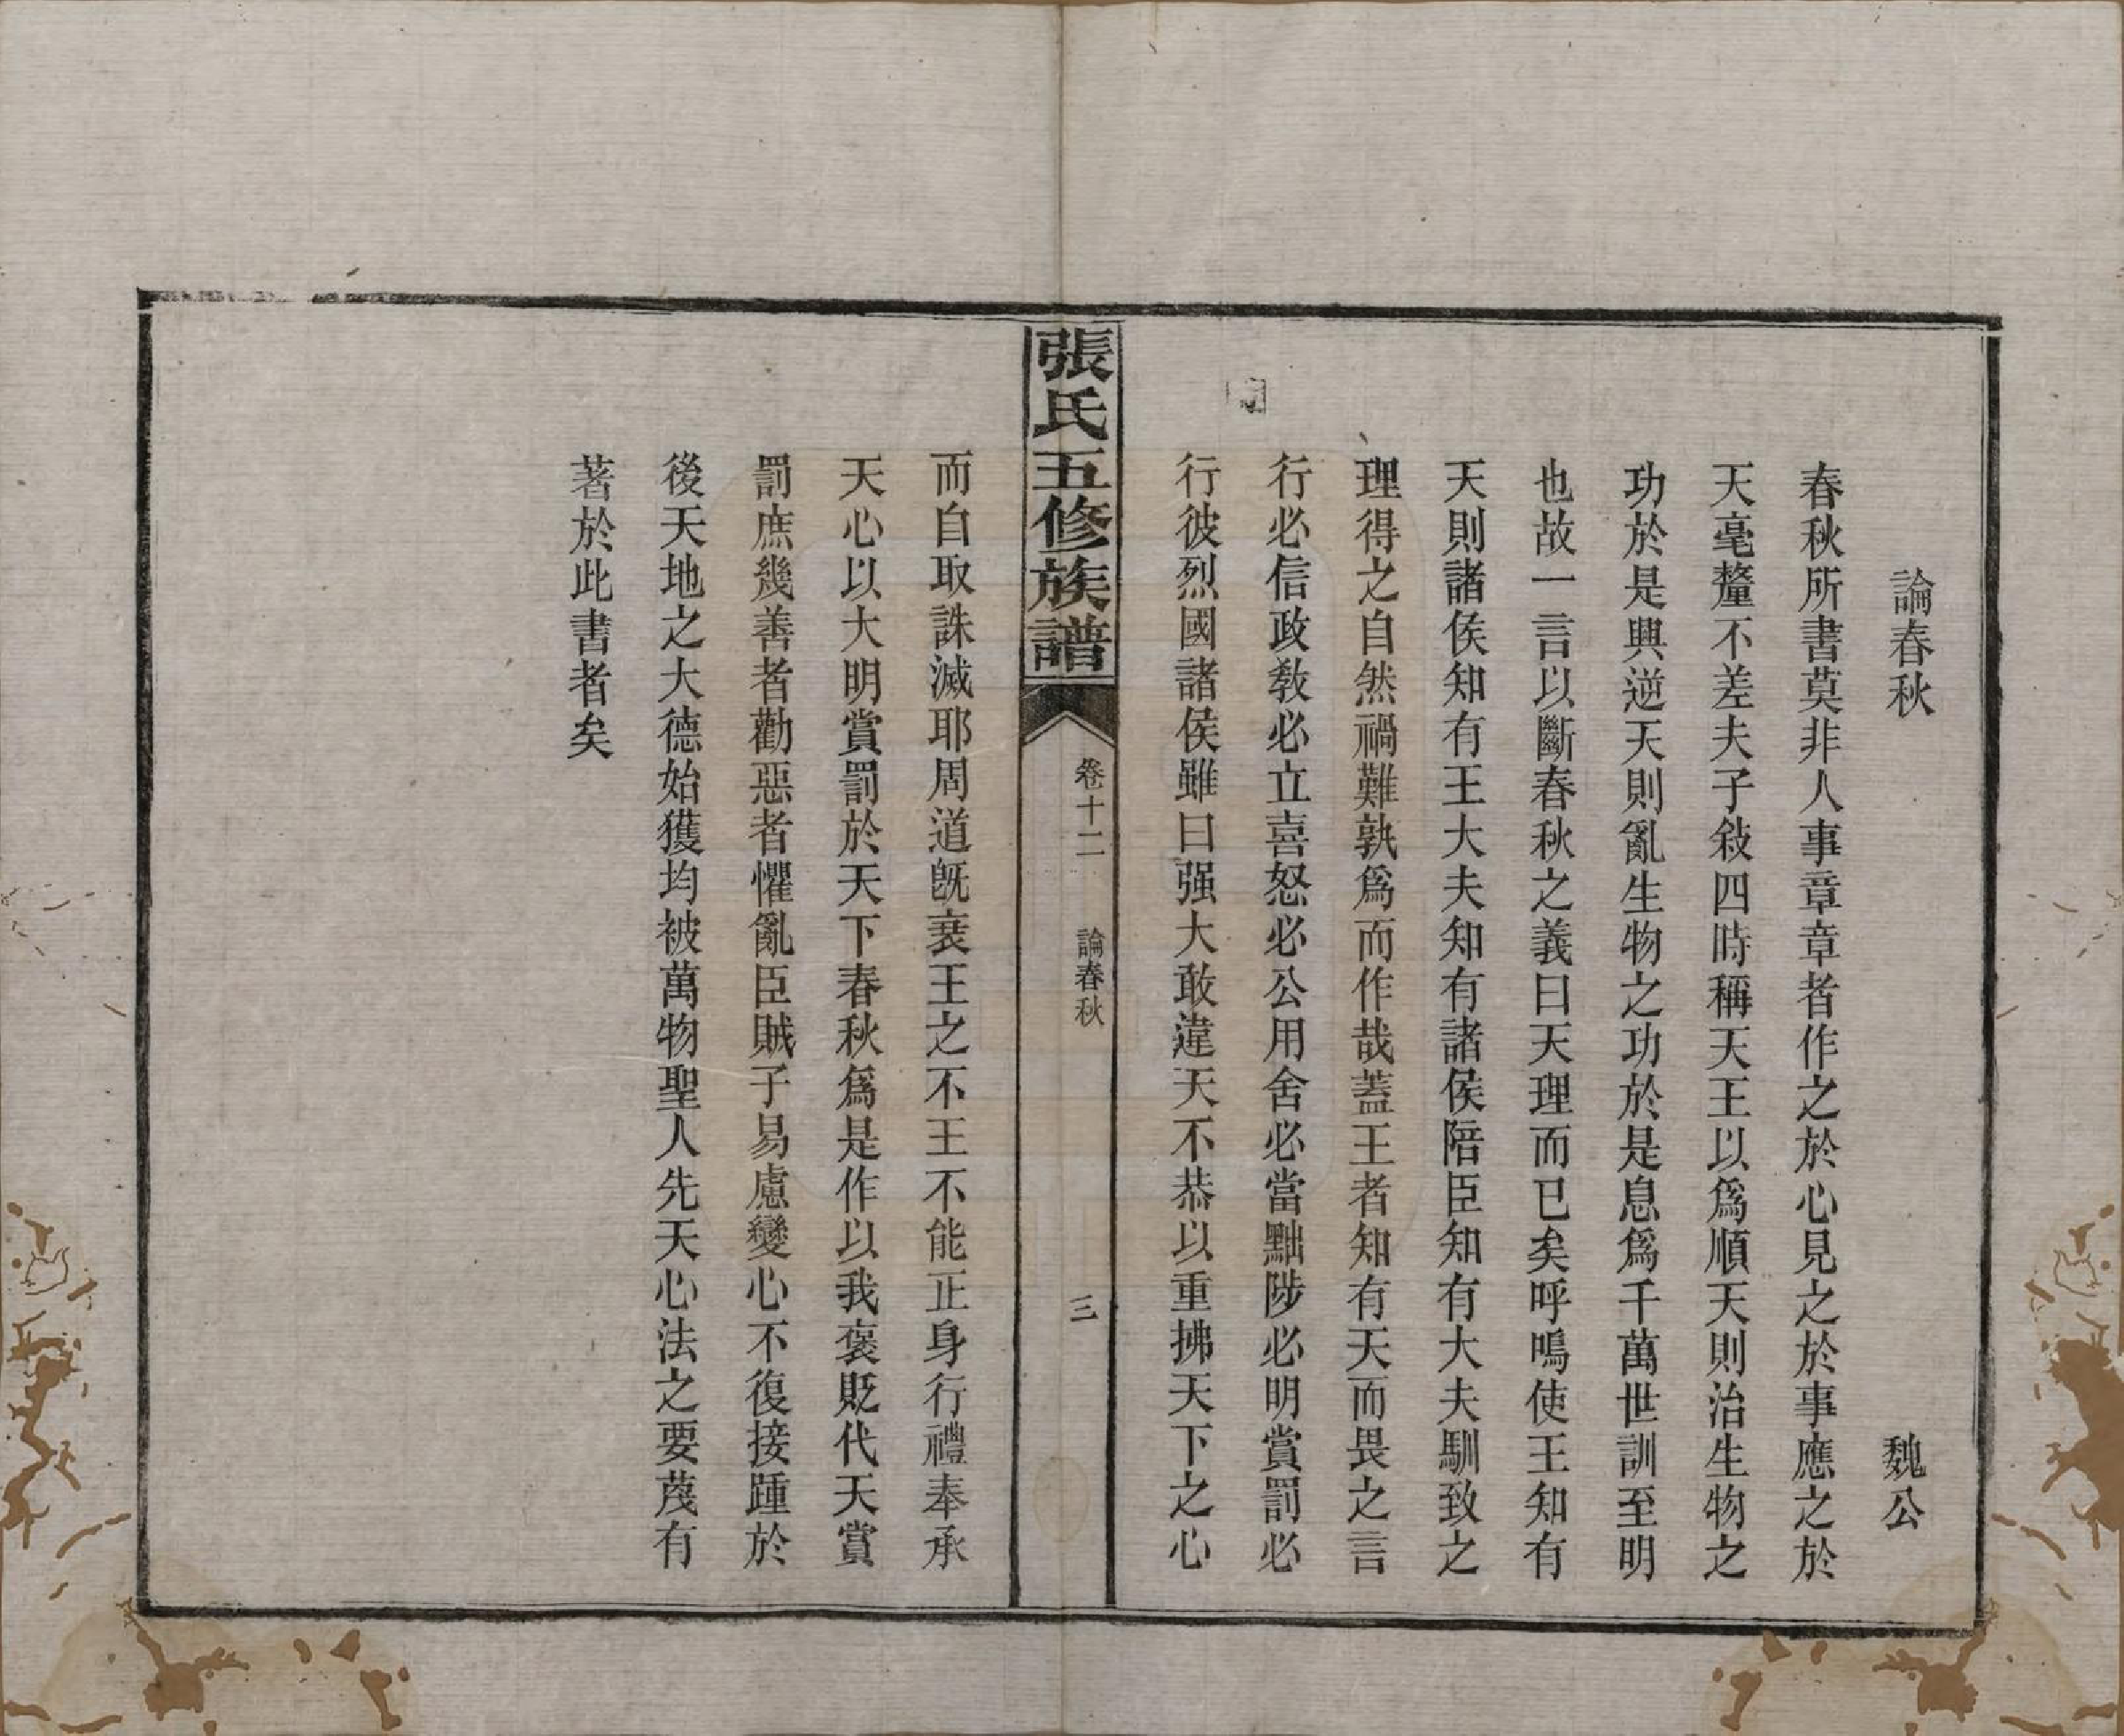 論春秋　魏公
春秋所書莫非人事章章者作之於心見之於事應之於
天毫釐不差夫子敍四時稱天王以爲順天則治生物之
功於是興逆天則亂生物之功於是息爲千萬世訓至明
也故一言以斷春秋之義曰天理而已矣呼鳴使王知有
天則諸侯知有王大夫知有諸侯陪臣知有大夫馴致之
理得之自然禍難孰爲而作哉蓋王者知有天而畏之言
行必信政敎必立喜怒必公用舍必當黜陟必明賞罰必
行彼烈國諸侯雖曰强大敢違天不恭以重拂天下之心
張氏五修族譜　卷十二　論春秋　三
而自取誅滅耶周道旣衰王之不王不能正身行禮奉承
天心以大明賞罰於天下春秋爲是作以我褒貶代天賞
罰庶幾善者勸惡者懼亂臣賊子易慮變心不復接踵於
後天地之大德始獲均被萬物聖人先天心法之要蔑有
著於此書者矣